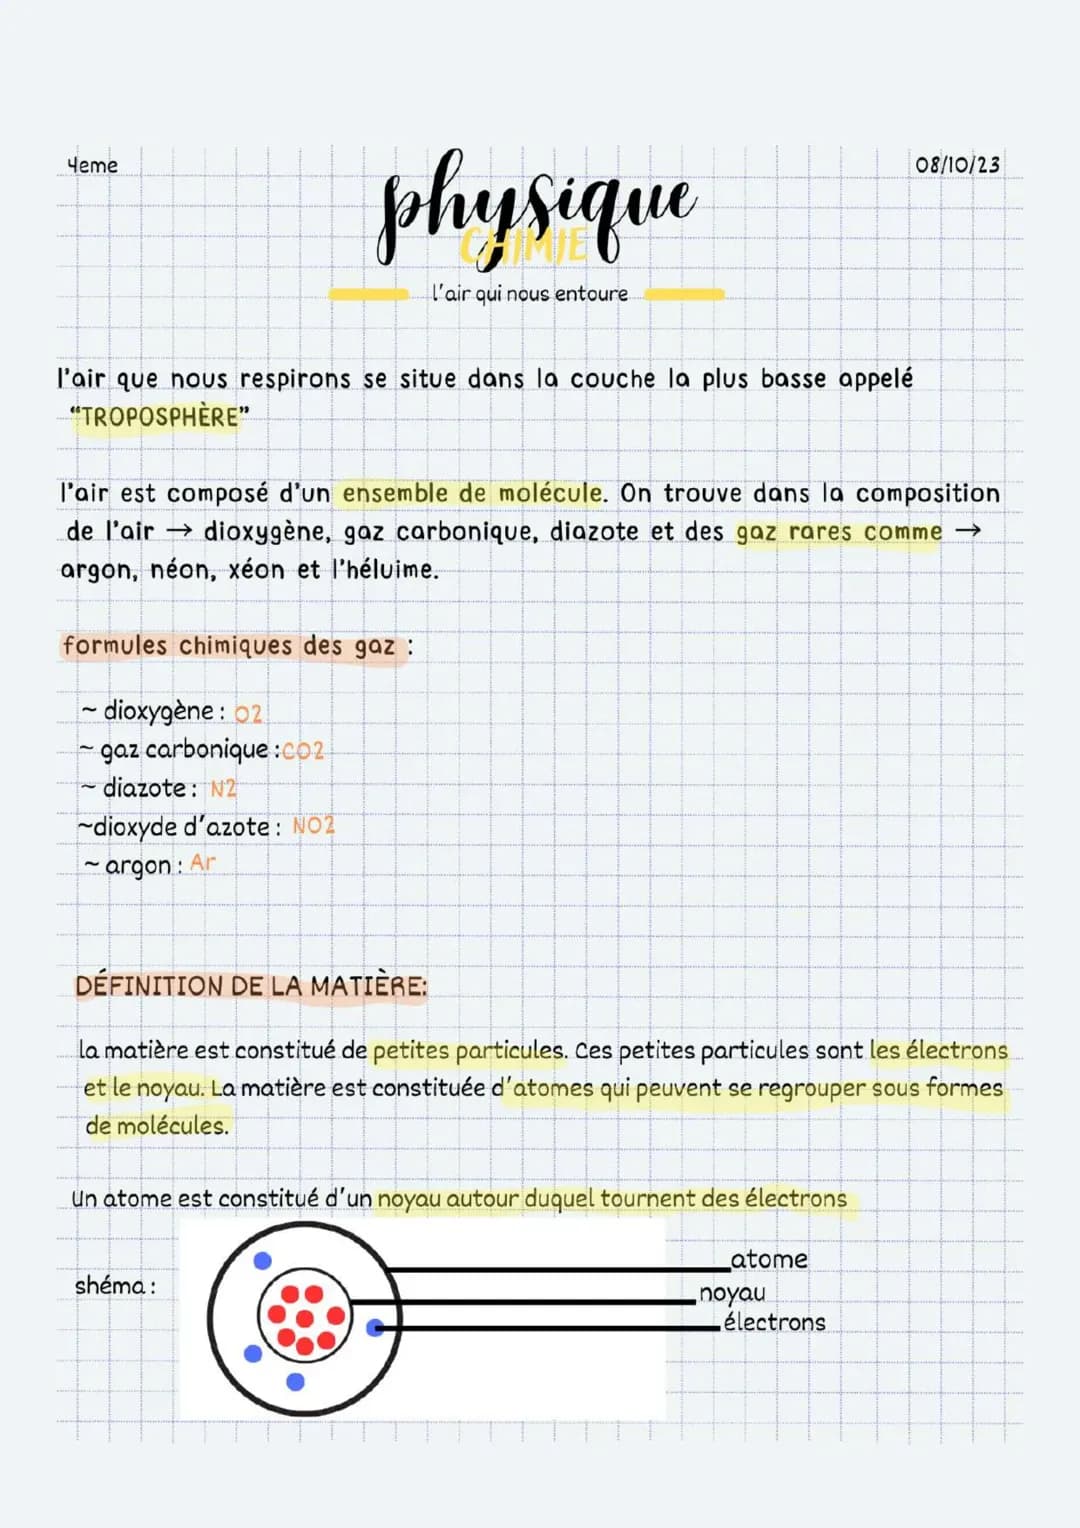 4eme
08/10/23
physique
CHIMIE
l'air qui nous entoure
l'air que nous respirons se situe dans la couche la plus basse appelé
“TROPOSPHÈRE”
l'air est composé d'un ensemble de molécule. On trouve dans la composition
de l'air → dioxygène, gaz carbonique, diazote et des gaz rares comme →
argon, néon, xéon et l'héluime.
formules chimiques des gaz :
~ dioxygène : O2
~ gaz carbonique :CO2
~ diazote : N2
~dioxyde d'azote : NO2
~ argon : Ar
DÉFINITION DE LA MATIÈRE:
la matière est constitué de petites particules. Ces petites particules sont les électrons
et le noyau. La matière est constituée d'atomes qui peuvent se regrouper sous formes
de molécules.
Un atome est constitué d'un noyau autour duquel tournent des électrons
shéma :
atome
noyau
électrons